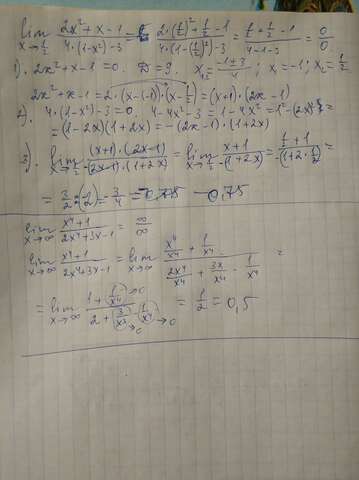 lim x→1/2 (2x²+x-1)/(4·(1-x²)-3) = (2·(1/2)²+1/2-1)/(4·(1-(1/2)²)-3) = (1/2+1/2-1)/(4-1-3) = 0/0
1). 2x²+x-1=0. D=9. x₁,₂ = (-1±3)/4; x₁=-1; x₂=1/2
2x²+x-1=2·(x-(-1))·(x-1/2)=(x+1)·(2x-1)
2). 4·(1-x²)-3=0. 4-4x²-3=1-4x²=1²-(2x)²=
=(1-2x)(1+2x)=-(2x-1)·(1+2x)
3). lim x→1/2 ((x+1)·(2x-1))/(-(2x-1)·(1+2x)) = lim x→1/2 (x+1)/(-(1+2x)) = (1/2+1)/(-(1+2·1/2)) =
= 3/2:(-2)= -3/4 = -0,75
lim x→∞ (x⁴+1)/(2x⁴+3x-1) = ∞/∞
lim x→∞ (x⁴+1)/(2x⁴+3x-1) = lim x→∞ (x⁴/x⁴+1/x⁴)/(2x⁴/x⁴+3x/x⁴-1/x⁴) =
= lim x→∞ (1+1/x⁴→0)/(2+3/x³→0-1/x⁴→0) = 1/2=0,5